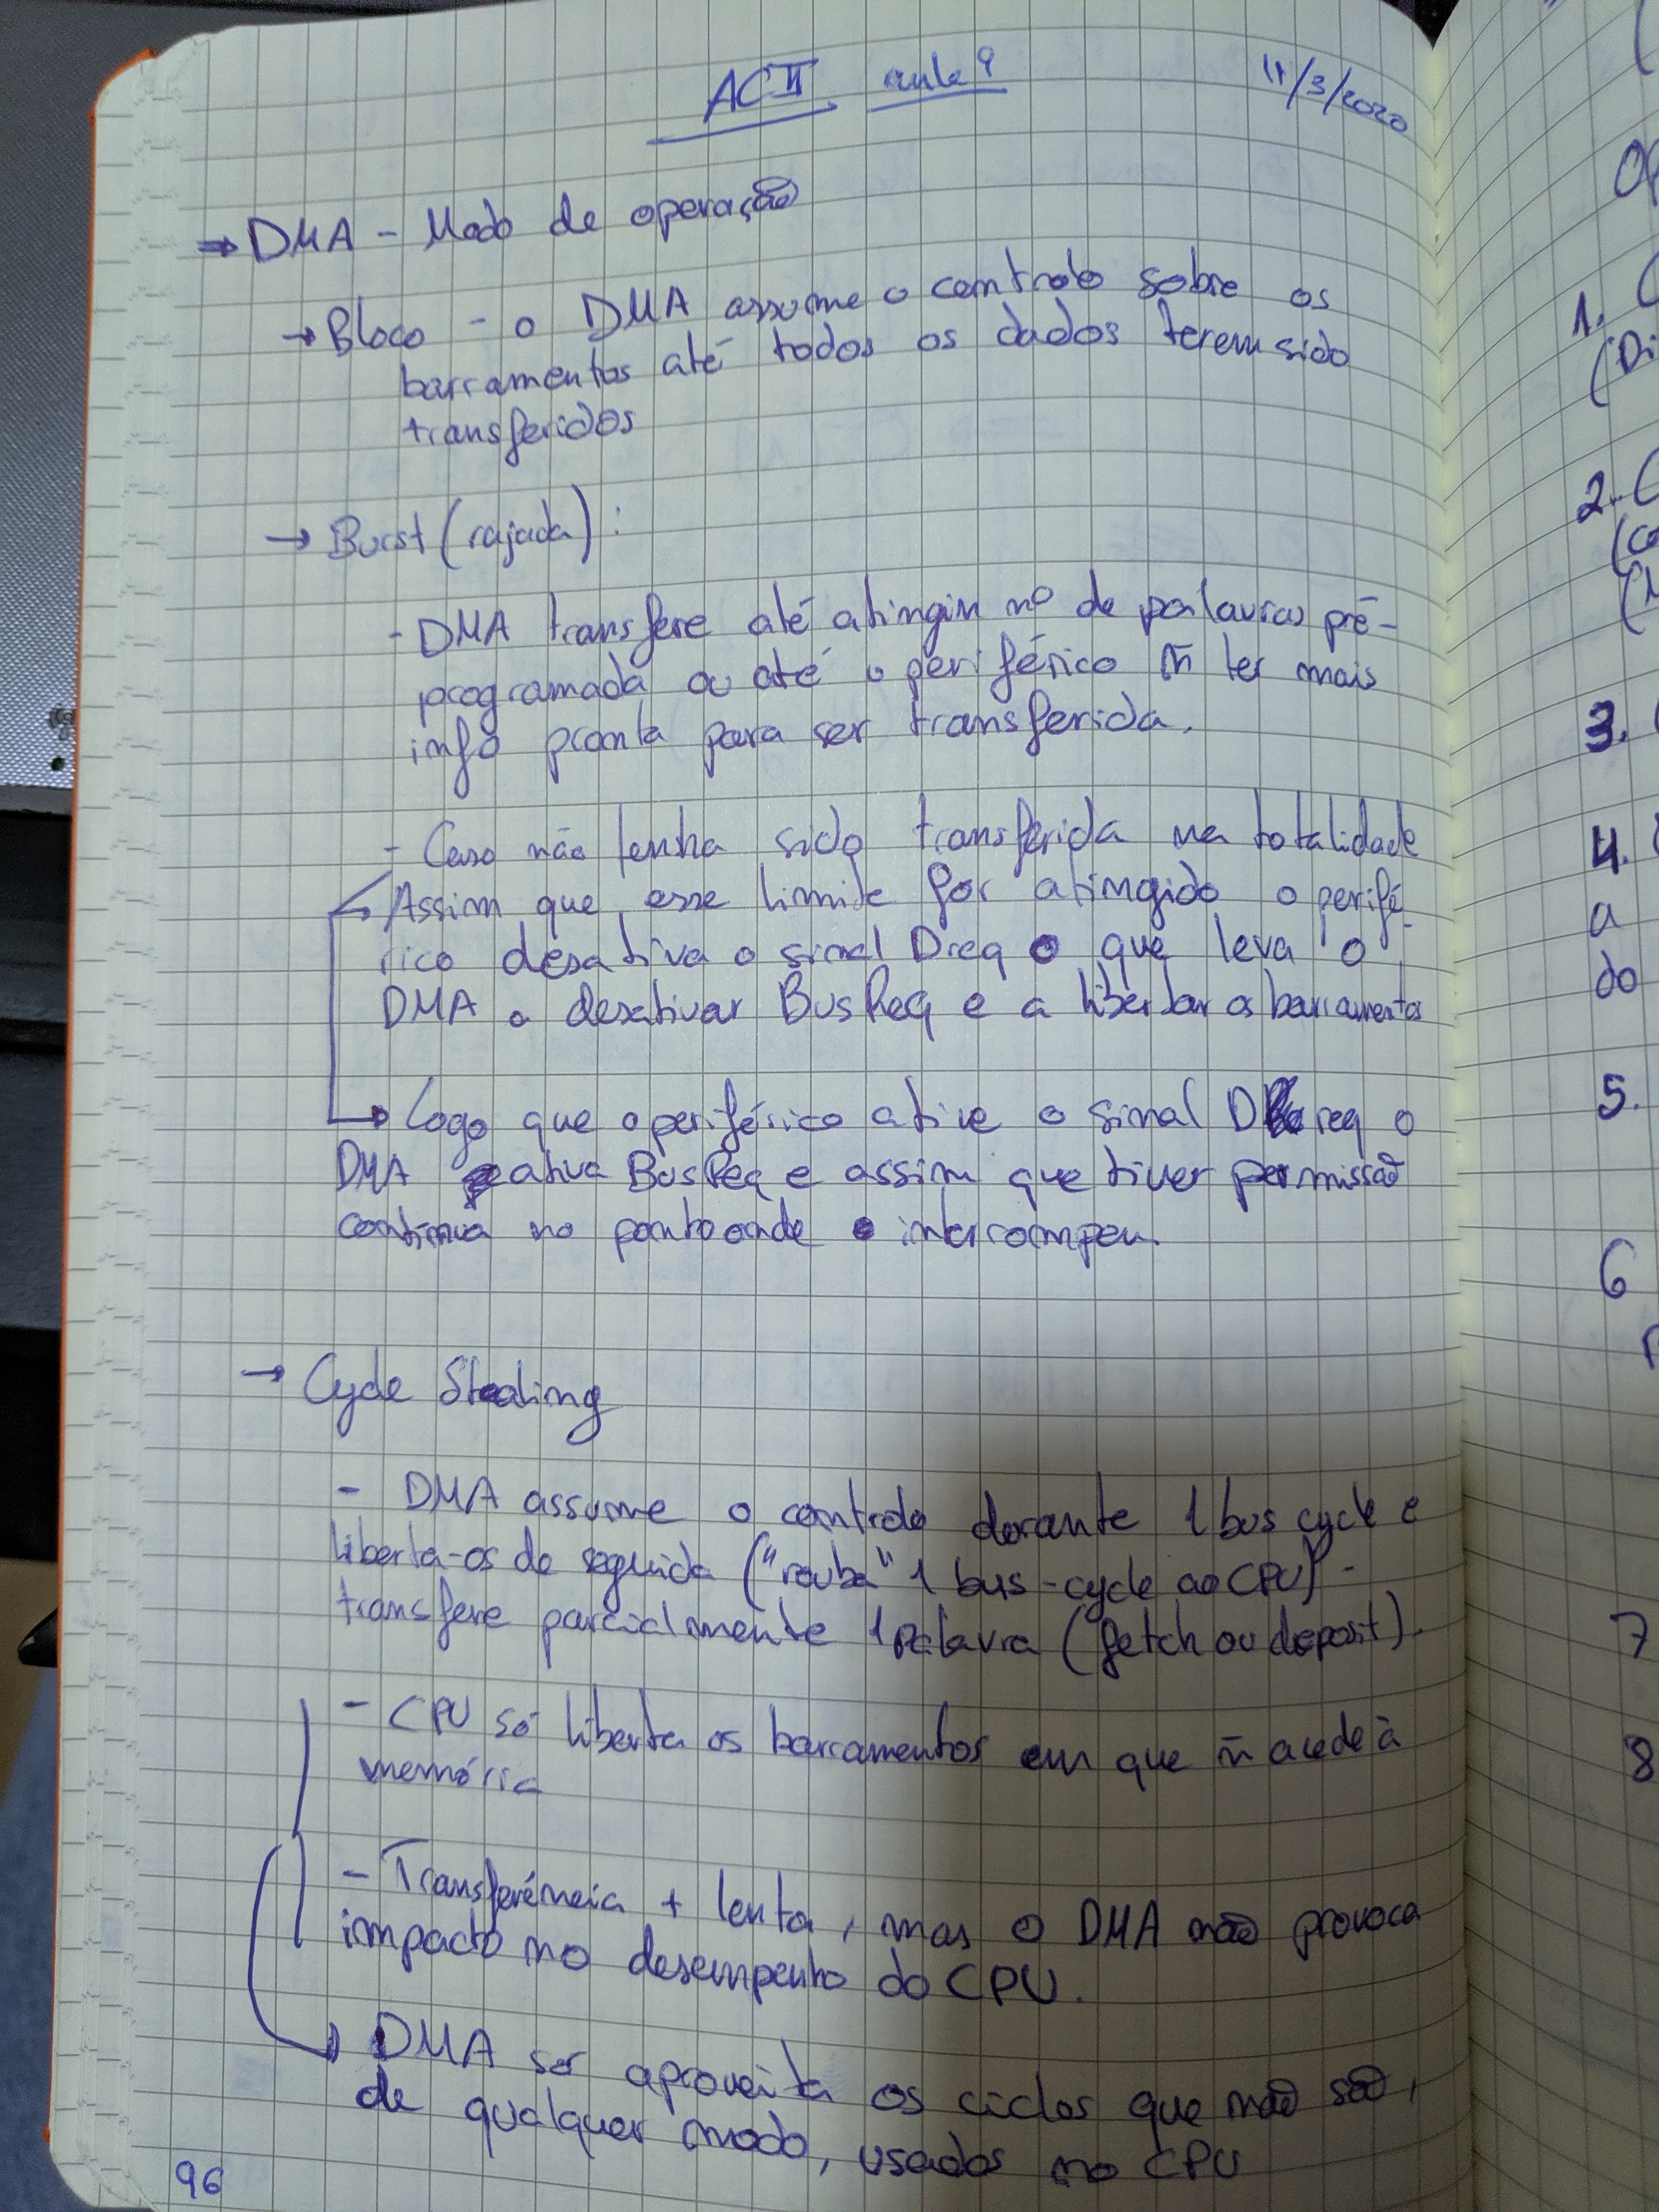 ACII aula 9 11/3/2020
→ DMA - Modo de operação
→ Bloco - o DMA assume o controlo sobre os
barramentos até todos os dados terem sido
transferidos
→ Burst (rajada) :
- DMA transfere até atingir nº de palavras pré-
programada ou até o periférico ñ ter mais
info pronta para ser transferida.
- Caso não tenha sido transferida na totalidade
Assim que esse limite for atingido o perifé
rico desativa o sinal Dreq o que leva o
DMA a desativar BusReq e a libertar os barramentos
Logo que o periférico ative o sinal Dreq o
DMA ativa BusReq e assim que tiver permissão
continua no ponto onde interrompeu.
→ Cycle Stealing
- DMA assume o controlo durante 1 bus cycle e
liberta-os de seguida ("rouba" 1 bus-cycle ao CPU) -
transfere parcialmente 1 palavra (fetch ou deposit).
- CPU só liberta os barramentos em que ñ acede à
memória
- Transferência + lenta, mas o DMA não provoca
impacto no desempenho do CPU.
DMA só aproveita os ciclos que não são,
de qualquer modo, usados no CPU
96
Op
1. C
(Di
2. C
(Co
(M
3.
4.
a
do
5.
6
7
8